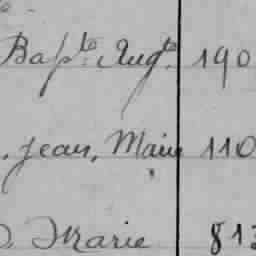 Bapte Augte 190
, Jean, Marie 110
Marie 813